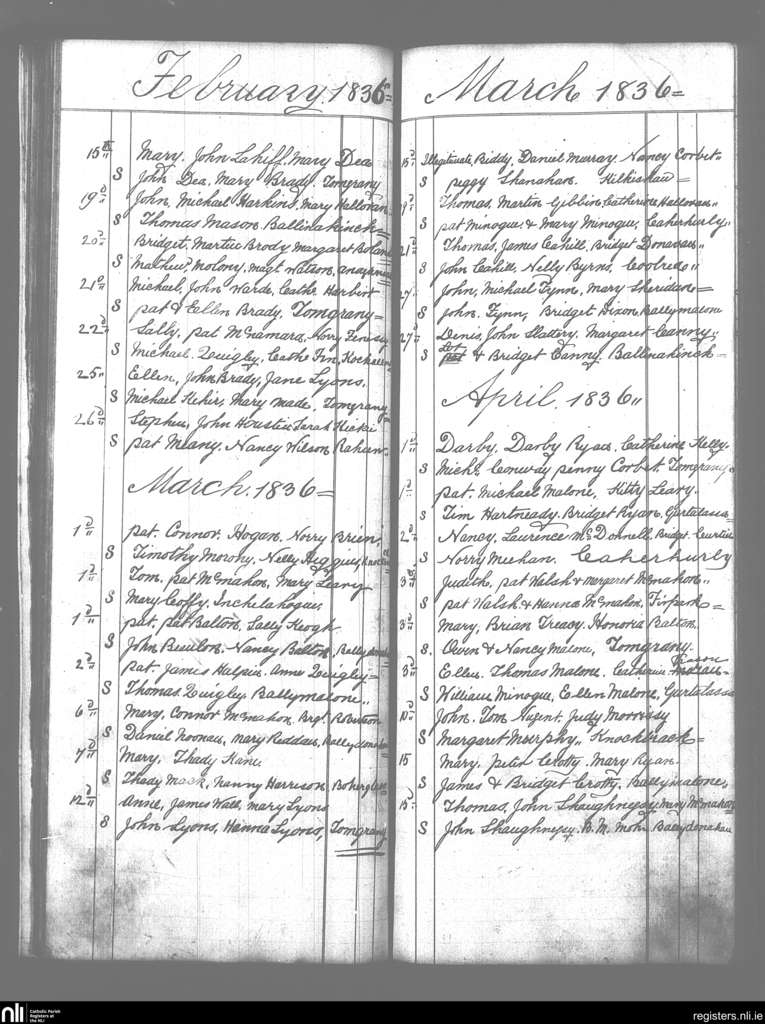 February. 1836=
15 Mary. John Lahiff. Mary Dea
S John Dea. Mary Brady. Tomgrany
19 John, Michael Harkins, Mary Halloran
S Thomas Mason. Ballinahinch=
20 Bridget, Martin Brody Margaret Bolan
S Mathew Molony. Magt Watson,
21 Michael, John Warde, Cathe Harbert
S pat & Ellen Brady. Tomgrany
22 Sally. pat McNamara. Norry
S Michael Quigley. Cathe
25 Ellen, John Brady, Jane Lyons.
S Michael Hehir, Mary Made, Tomgrany
26 Stephen, John Houstin Sarah Hickie
S pat Meany. Nancy Wilson Raheen
March. 1836=
1 pat. Connor. Hogan. Norry Brien,
S Timothy Morony, Nelly Higgins,
1 Tom. pat McMahon, Mary Leary
S Mary Coffy. Inchelahogue,
1 pat. Pat Balton, Sally Keogh
S John Nancy Balton,
2 pat. James Halpin. Anne Quigley=
S Thomas. Quigley. Ballymalone"
6 Mary, Connor McMahon, Brgt Robinson
S Daniel Noonan, Mary Reddan, Ballydonahan
7 Mary, Thady Kane
S Thady Mack, Nanny Harrison
12 Anne, James Wall, Mary Lyons
S John Lyons, Hanna Lyons, Tomgrany
March 1836=
15 Illegitimate, Biddy, Daniel Murray Nancy Corbet"
S peggy Shanahan. Kilkishau=
Thomas, Martin Giblin, Catherine Halloran"
S pat Minogue. & Mary Minogue, Caherhurly"
21 Thomas, James Cahill, Bridget Donavan"
S John Cahill, Nelly Byrns, Coolreo"
27 John, Michael Fynn, Mary Sheridan=
S John. Fynn, Bridget Dixon, Ballymalone
27 Denis, John Slattery. Margaret Canny;
S & Bridget Canny. Ballinahinch=
April. 1836"
1 Darby, Darby Ryan. Catherine Kelly.
S Michl Conway penny Corbet. Tomgrany
1 pat. Michael Malone, Kitty Leary.
S Tim Hartneady. Bridget Ryan, Gurtatassa=
2 Nancy, Laurence McDonnell. Bridget. Curtis
S Norry Meehan. Caherhurly
3 Judith, pat Walsh & Margaret McMahon"
S pat Walsh & Hanna McMahon, Firpark=
3 Mary, Brian Treacy. Honora Balton
S. Owen & Nancy Malone, Tomgrany.
8 Ellen. Thomas Malone. Catherine
S William, Minogue, Ellen Malone, Gurtatassa
10 John. Tom Nugent. Judy Morrissy
S Margaret Murphy" Knockbrack=
15 Mary. peter Crotty. Mary Ryan.
S James & Bridget Crotty. Ballymalone,
15 Thomas, John Shaughnessy, Mary McMahon
S John Shaughnessy. B. M. Mohr Ballydonahan
nli Catholic Parish Registers at the NLI
registers.nli.ie